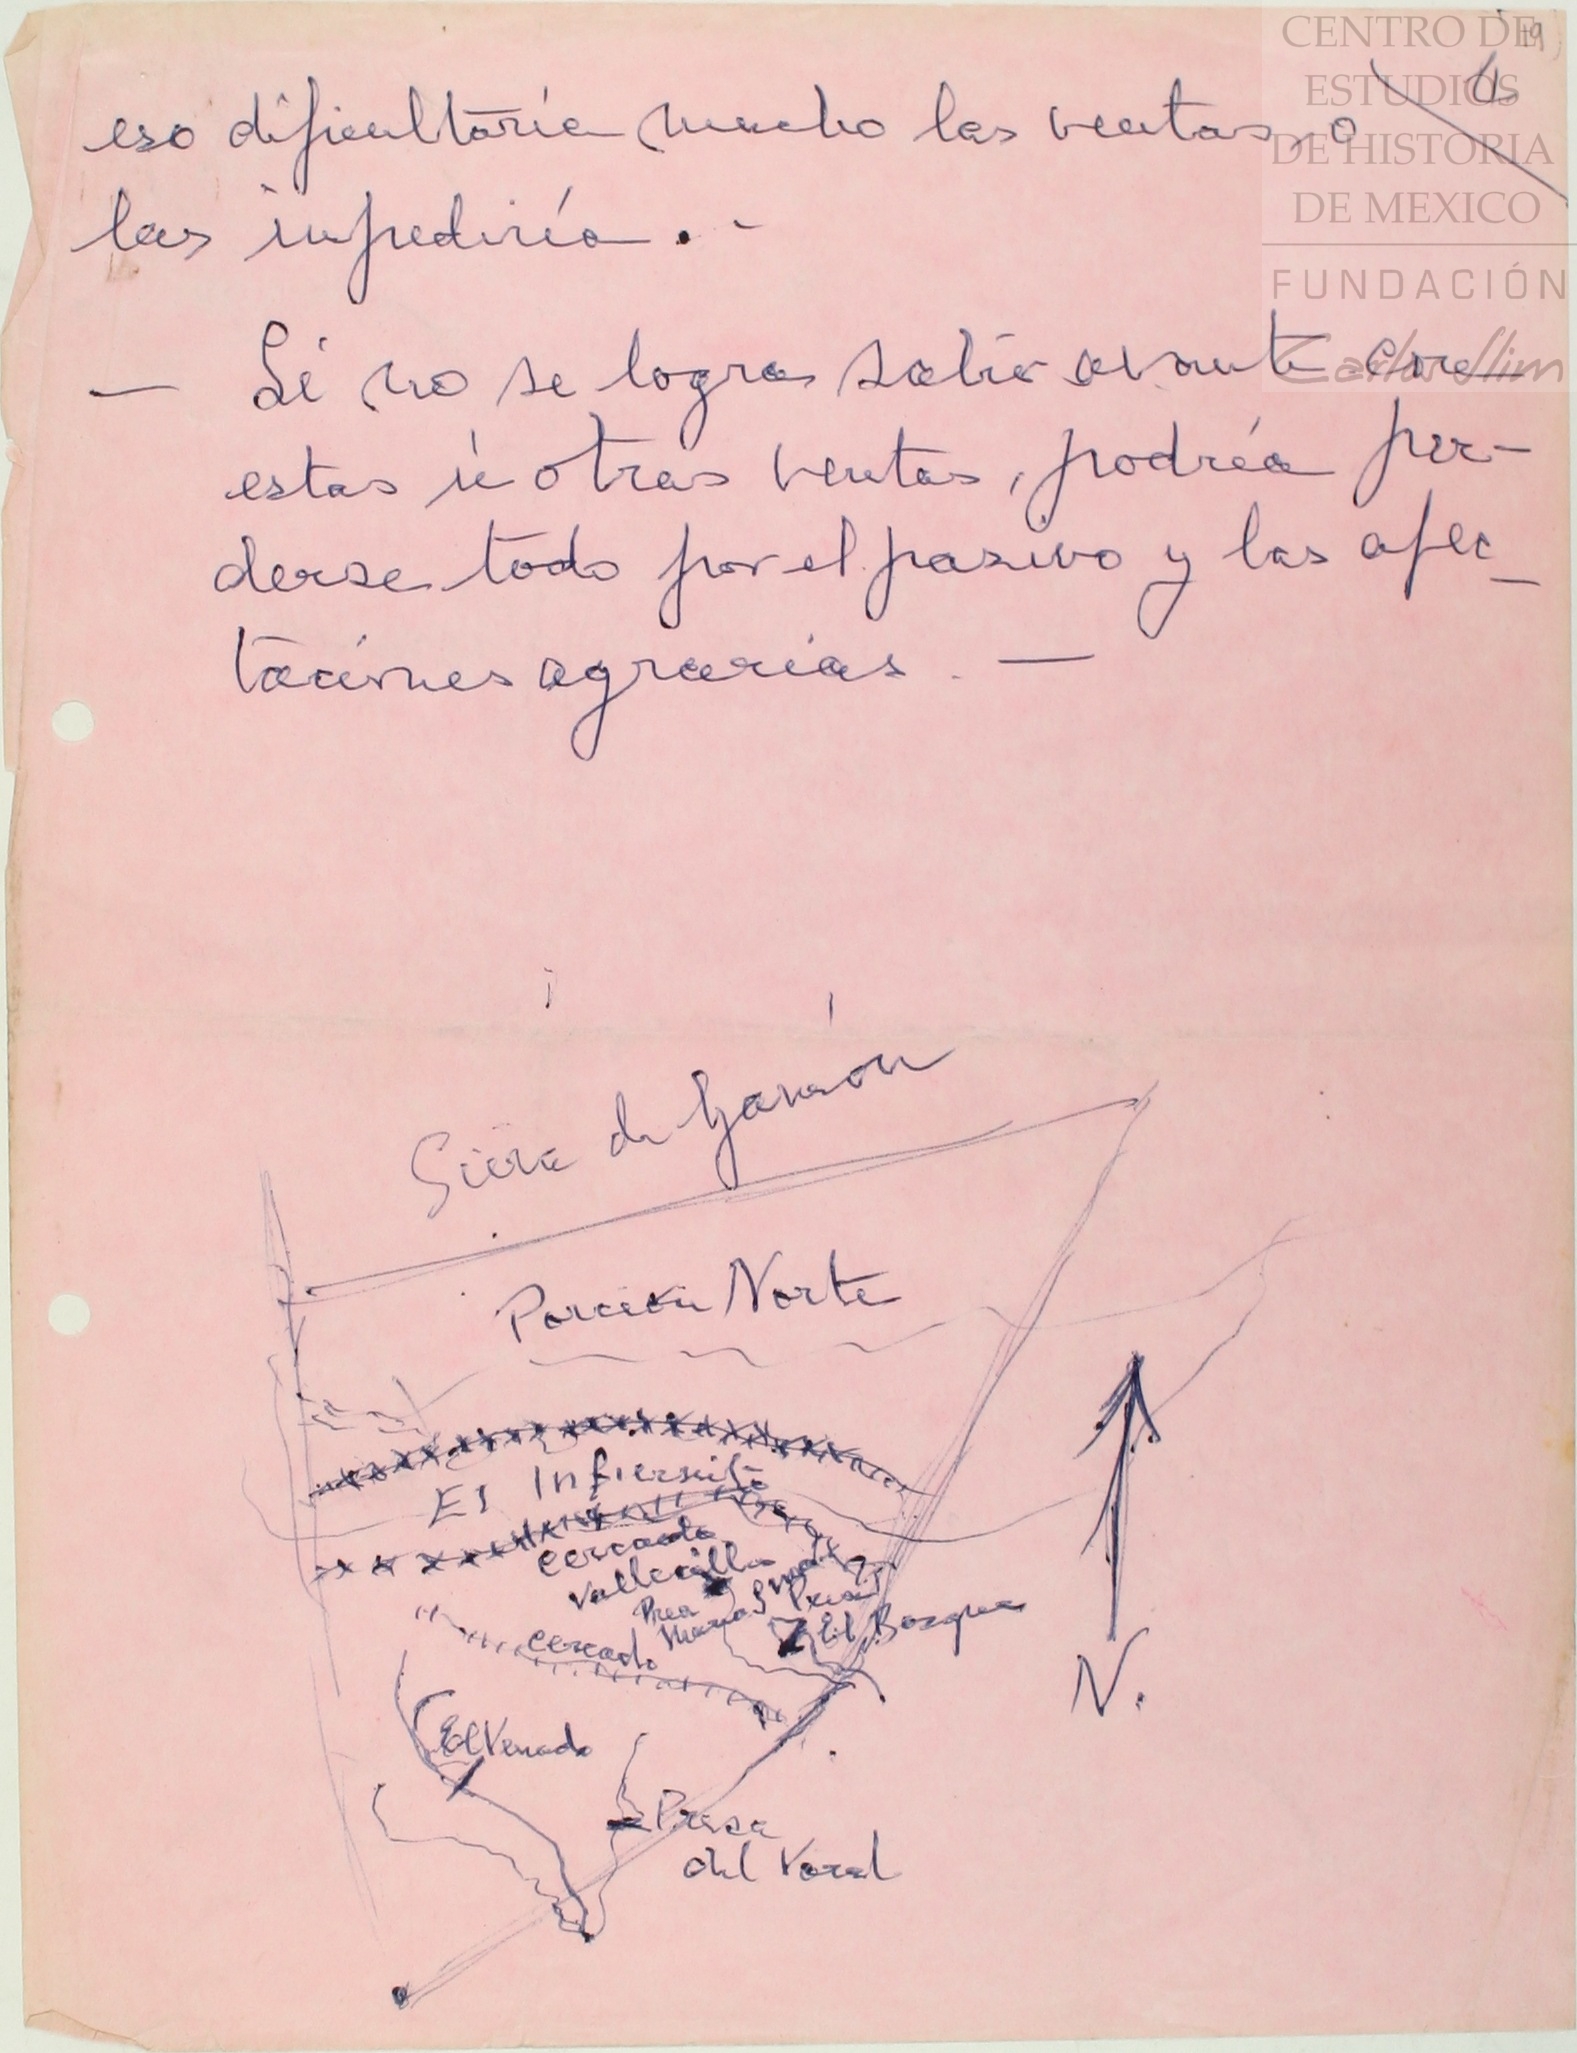 CENTRO DE
ESTUDIOS
DE HISTORIA
DE MEXICO
FUNDACIÓN
Carlos Slim
19
4
eso dificultaría mucho las ventas, o
las impediría. -
— Si no se logra salir avante con
estas ú otras ventas, podría per-
derse todo por el pasivo y las afec-
taciones agrarias. —
Sierra de Gavión
Porción Norte
El Infiernito
cercado
Vallecillo
Presa
El Bosque
cercado
N.
El Venado
Presa
del Voral